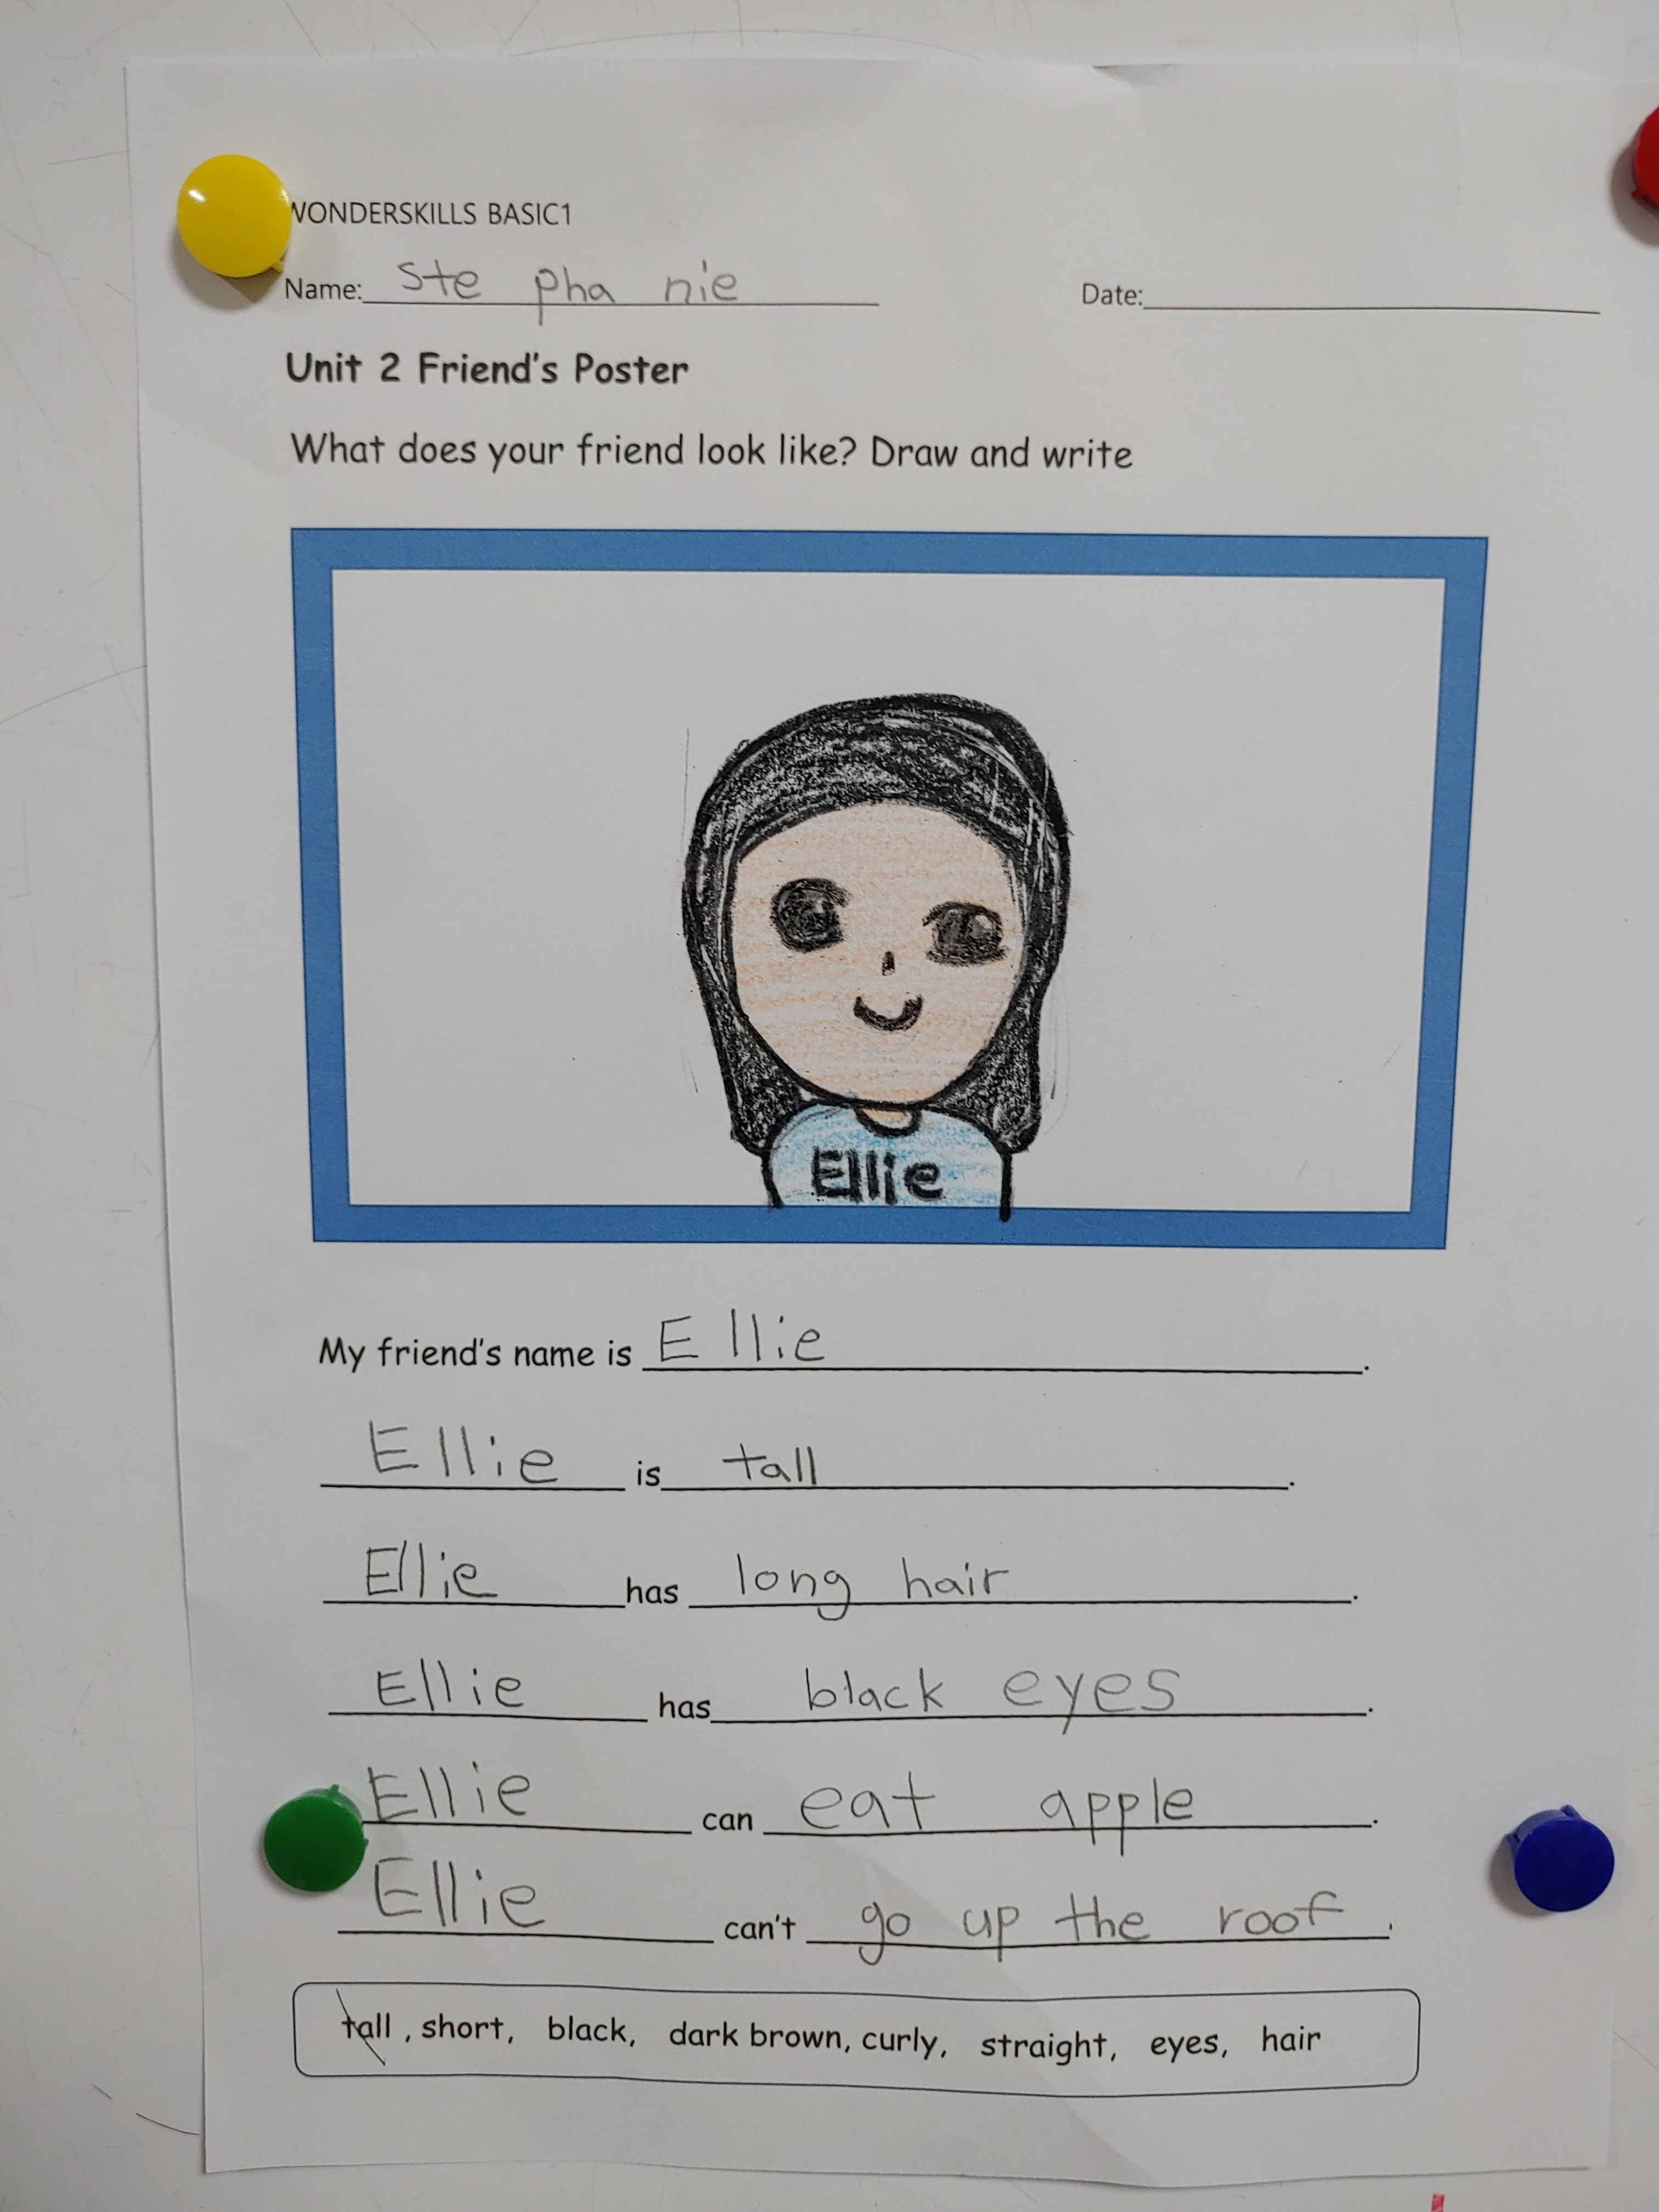 WONDERSKILLS BASIC1
Name: Ste pha nie Date:
Unit 2 Friend's Poster
What does your friend look like? Draw and write
Ellie
My friend's name is Ellie.
Ellie is tall.
Ellie has long hair.
Ellie has black eyes.
Ellie can eat apple.
Ellie can't go up the roof.
tall, short, black, dark brown, curly, straight, eyes, hair